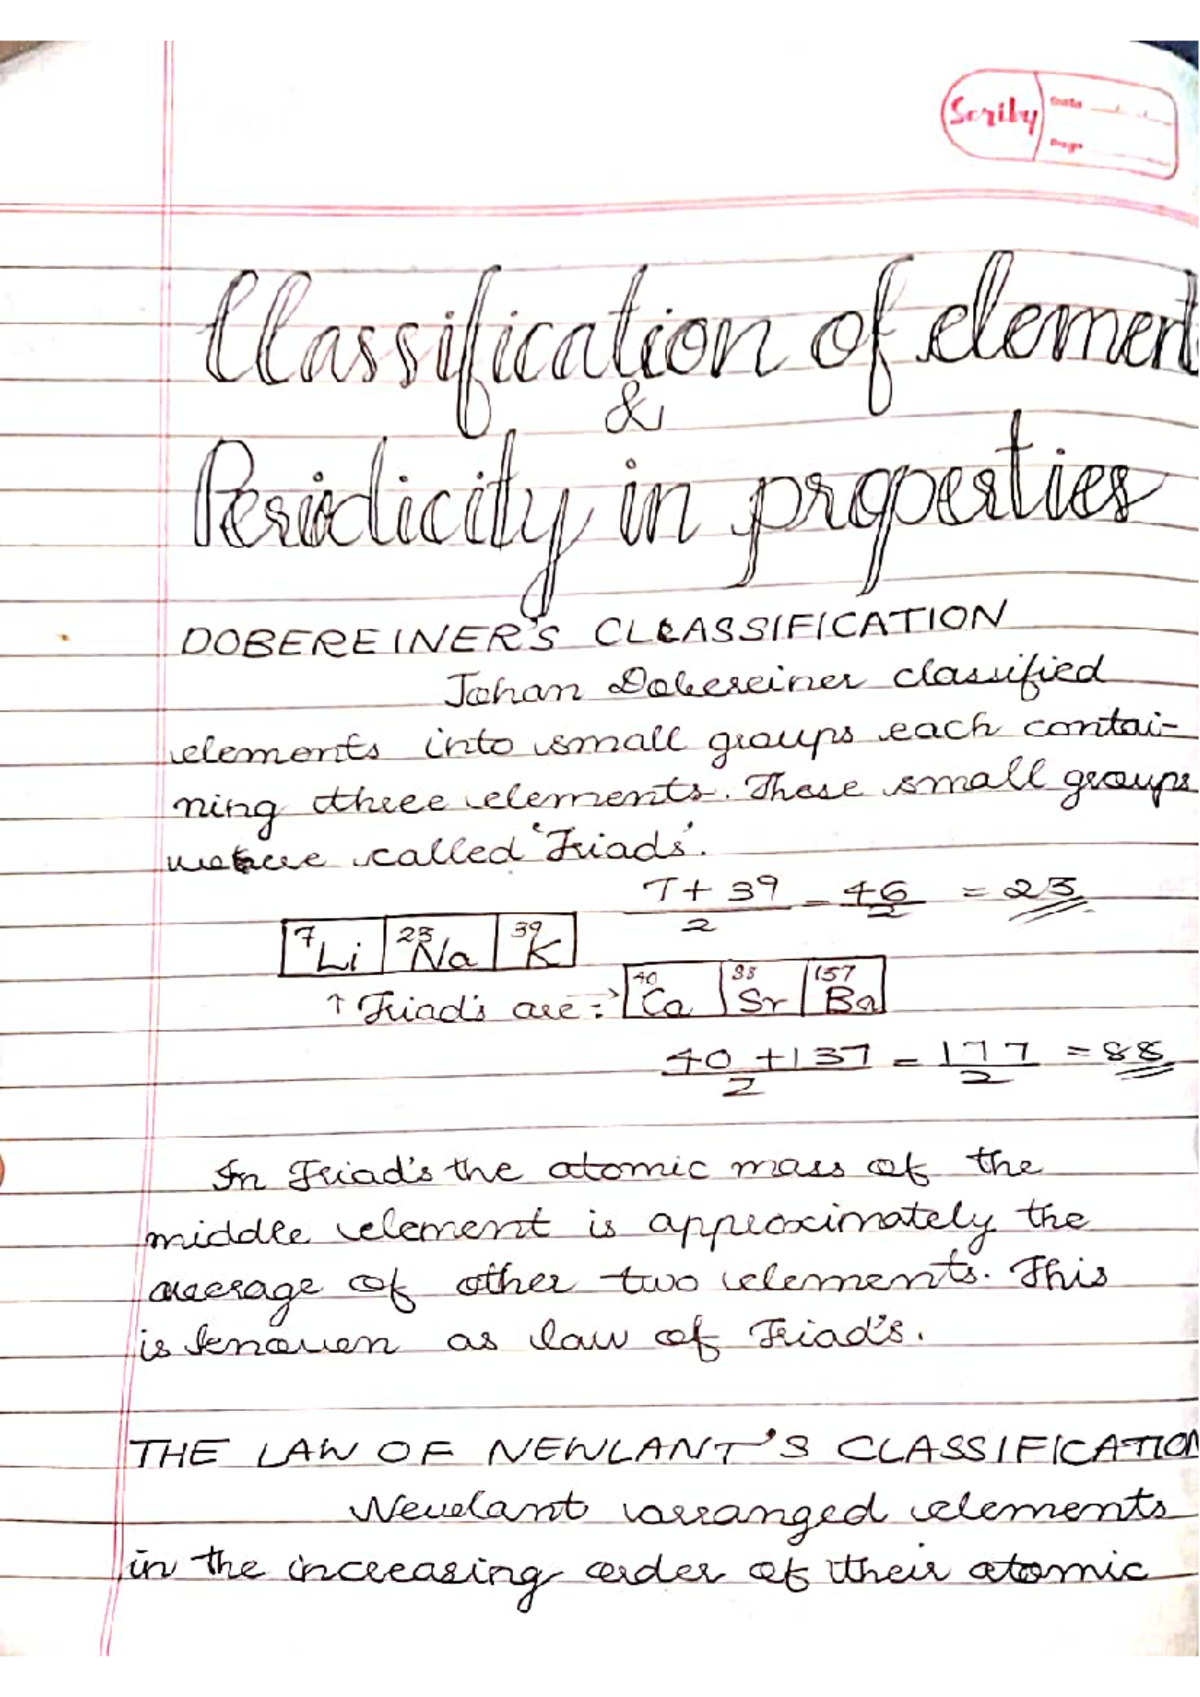 Scriby
Date
Page
Classification of element
&
Periodicity in properties
DOBEREINER'S CLASSIFICATION
Johan Dobereiner classified
elements into small groups each contai-
ning three elements. These small groups
were called 'Triads'.
7 + 39 / 2 = 46 / 2 = 23
7 Li 23 Na 39 K
↑ Triad's are :→ 40 Ca 88 Sr 137 Ba
40 + 137 / 2 = 177 / 2 = 88
In Triad's the atomic mass of the
middle element is approximately the
average of other two elements. This
is known as law of Triad's.
THE LAW OF NEWLANT'S CLASSIFICATION
Newlant arranged elements
in the increasing order of their atomic